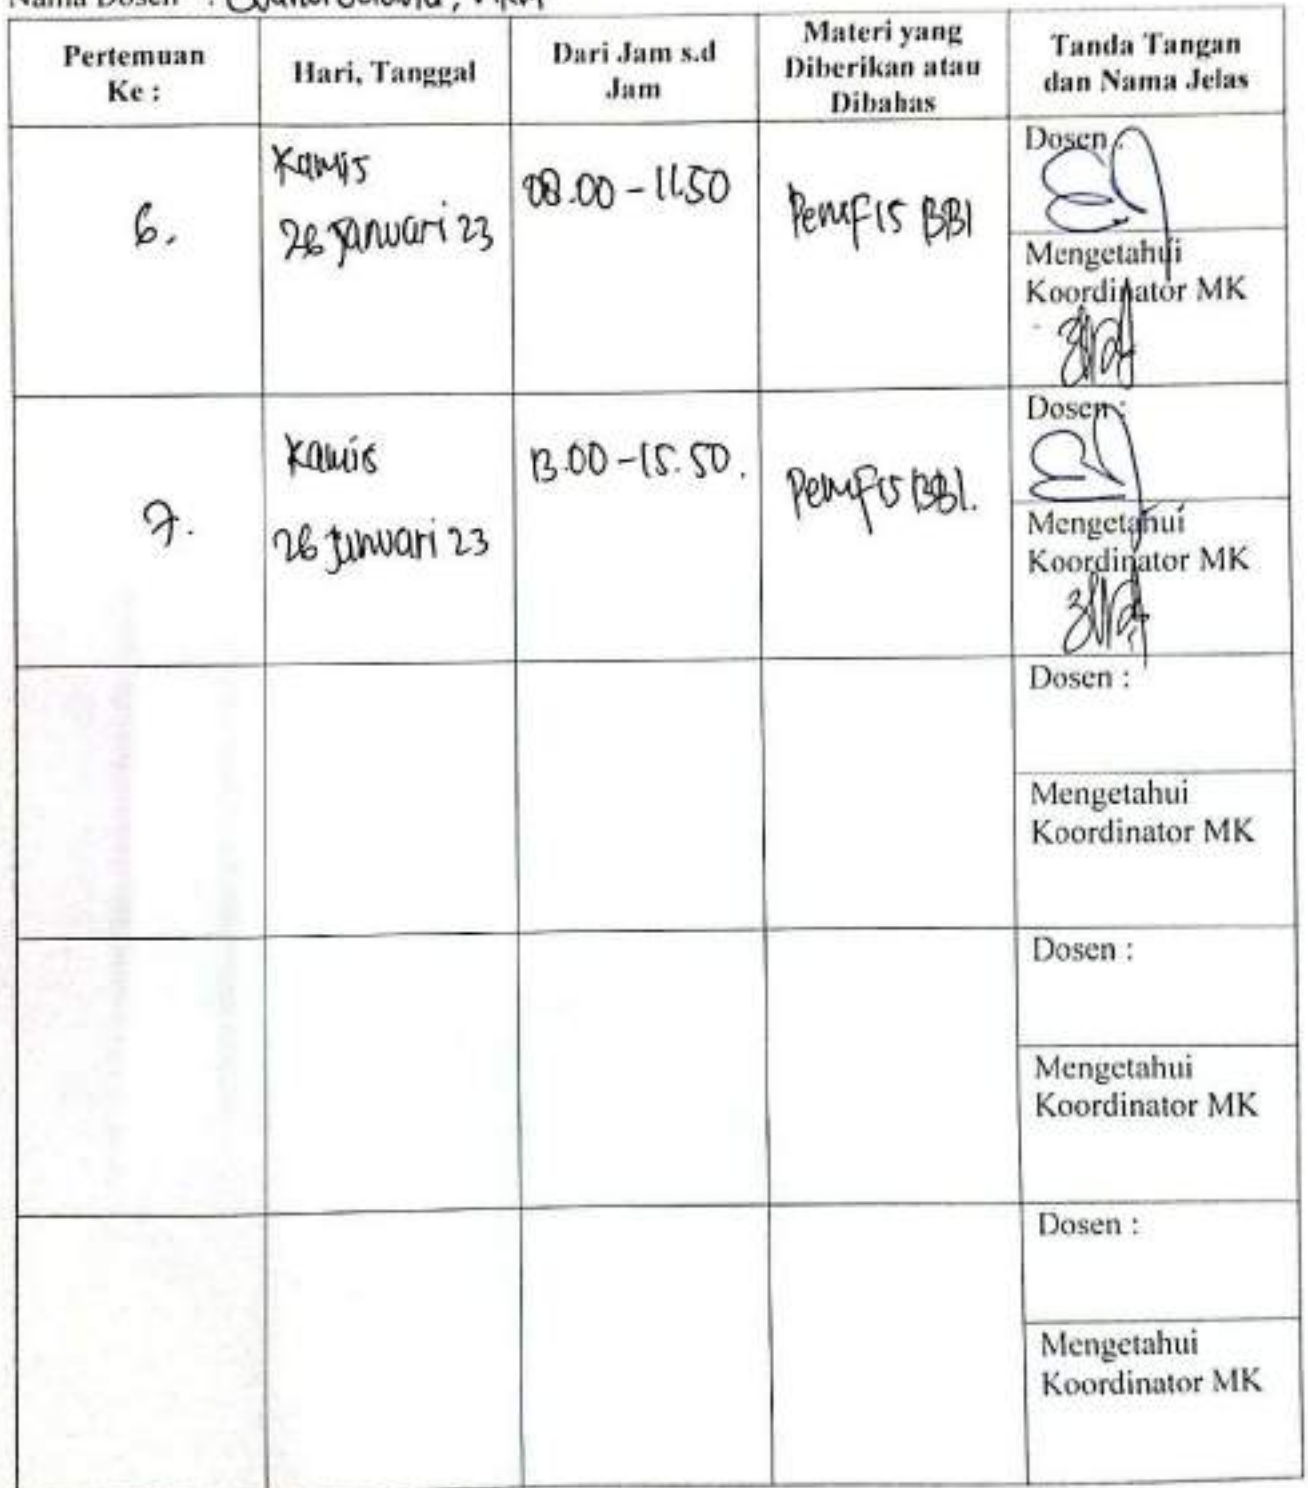 Nama Dosen :
Pertemuan
Ke :
Hari, Tanggal
Dari Jam s.d
Jam
Materi yang
Diberikan atau
Dibahas
Tanda Tangan
dan Nama Jelas
6.
Kamis
26 Januari 23
08.00 - 11.50
Pemfis BBl
Dosen :
Mengetahui
Koordinator MK
7.
Kamis
26 Januari 23
13.00 - 15.50.
Pemfis BBl.
Dosen :
Mengetahui
Koordinator MK
Dosen :
Mengetahui
Koordinator MK
Dosen :
Mengetahui
Koordinator MK
Dosen :
Mengetahui
Koordinator MK